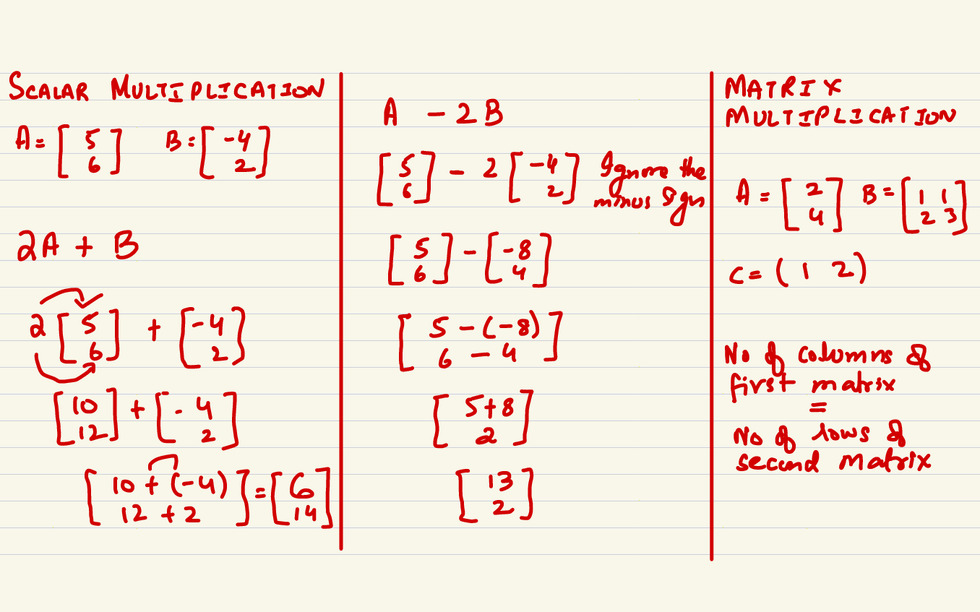 SCALAR MULTIPLICATION
A = [ 5
6 ] B = [ -4
2 ]
2A + B
2 [ 5
6 ] + [ -4
2 ]
[ 10
12 ] + [ - 4
2 ]
[ 10 + (-4)
12 + 2 ] = [ 6
14 ]
A - 2B
[ 5
6 ] - 2 [ -4
2 ] Ignore the
minus sign
[ 5
6 ] - [ -8
4 ]
[ 5 - (-8)
6 - 4 ]
[ 5+8
2 ]
[ 13
2 ]
MATRIX
MULTIPLICATION
A = [ 2
4 ] B = [ 1 1
2 3 ]
C = ( 1 2 )
No of columns of
first matrix
=
No of rows of
second matrix